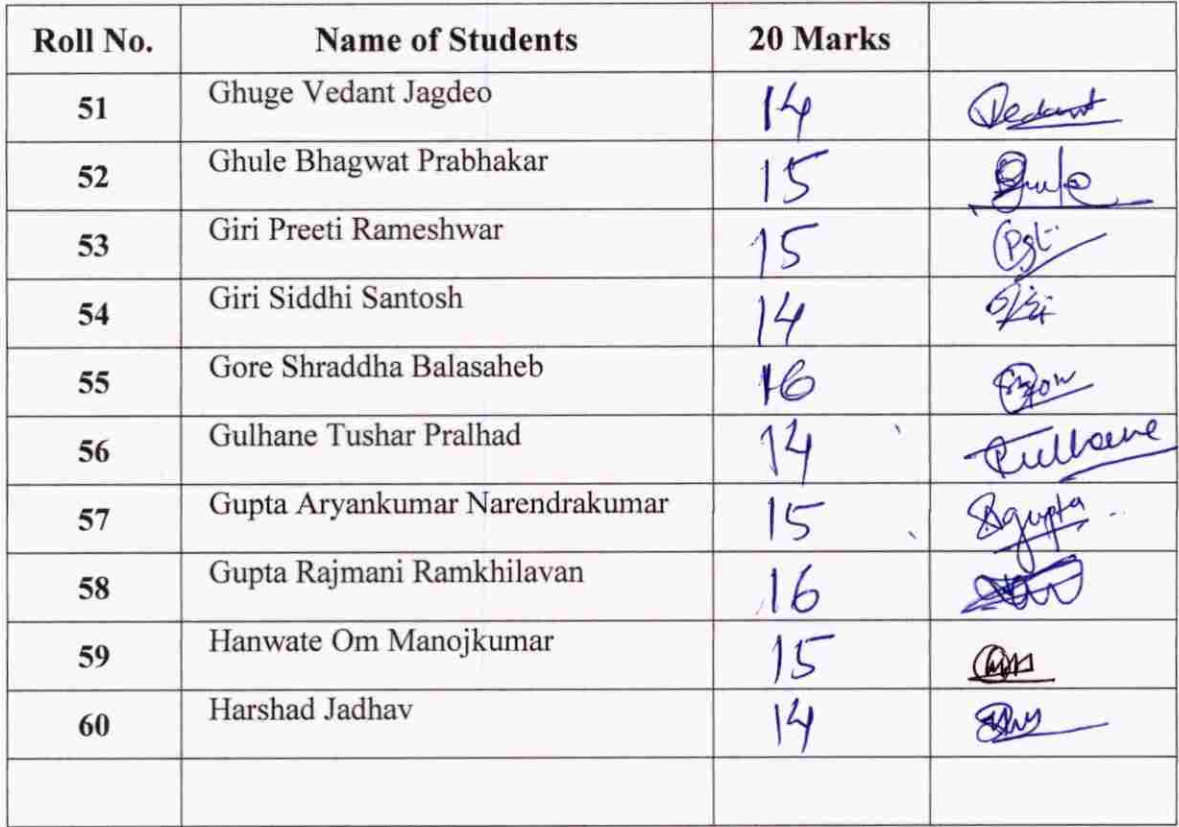 Roll No. Name of Students 20 Marks
51 Ghuge Vedant Jagdeo 14 Vedant
52 Ghule Bhagwat Prabhakar 15 Ghule
53 Giri Preeti Rameshwar 15
54 Giri Siddhi Santosh 14
55 Gore Shraddha Balasaheb 16
56 Gulhane Tushar Pralhad 14 Gulhane
57 Gupta Aryankumar Narendrakumar 15 Agupta
58 Gupta Rajmani Ramkhilavan 16
59 Hanwate Om Manojkumar 15
60 Harshad Jadhav 14